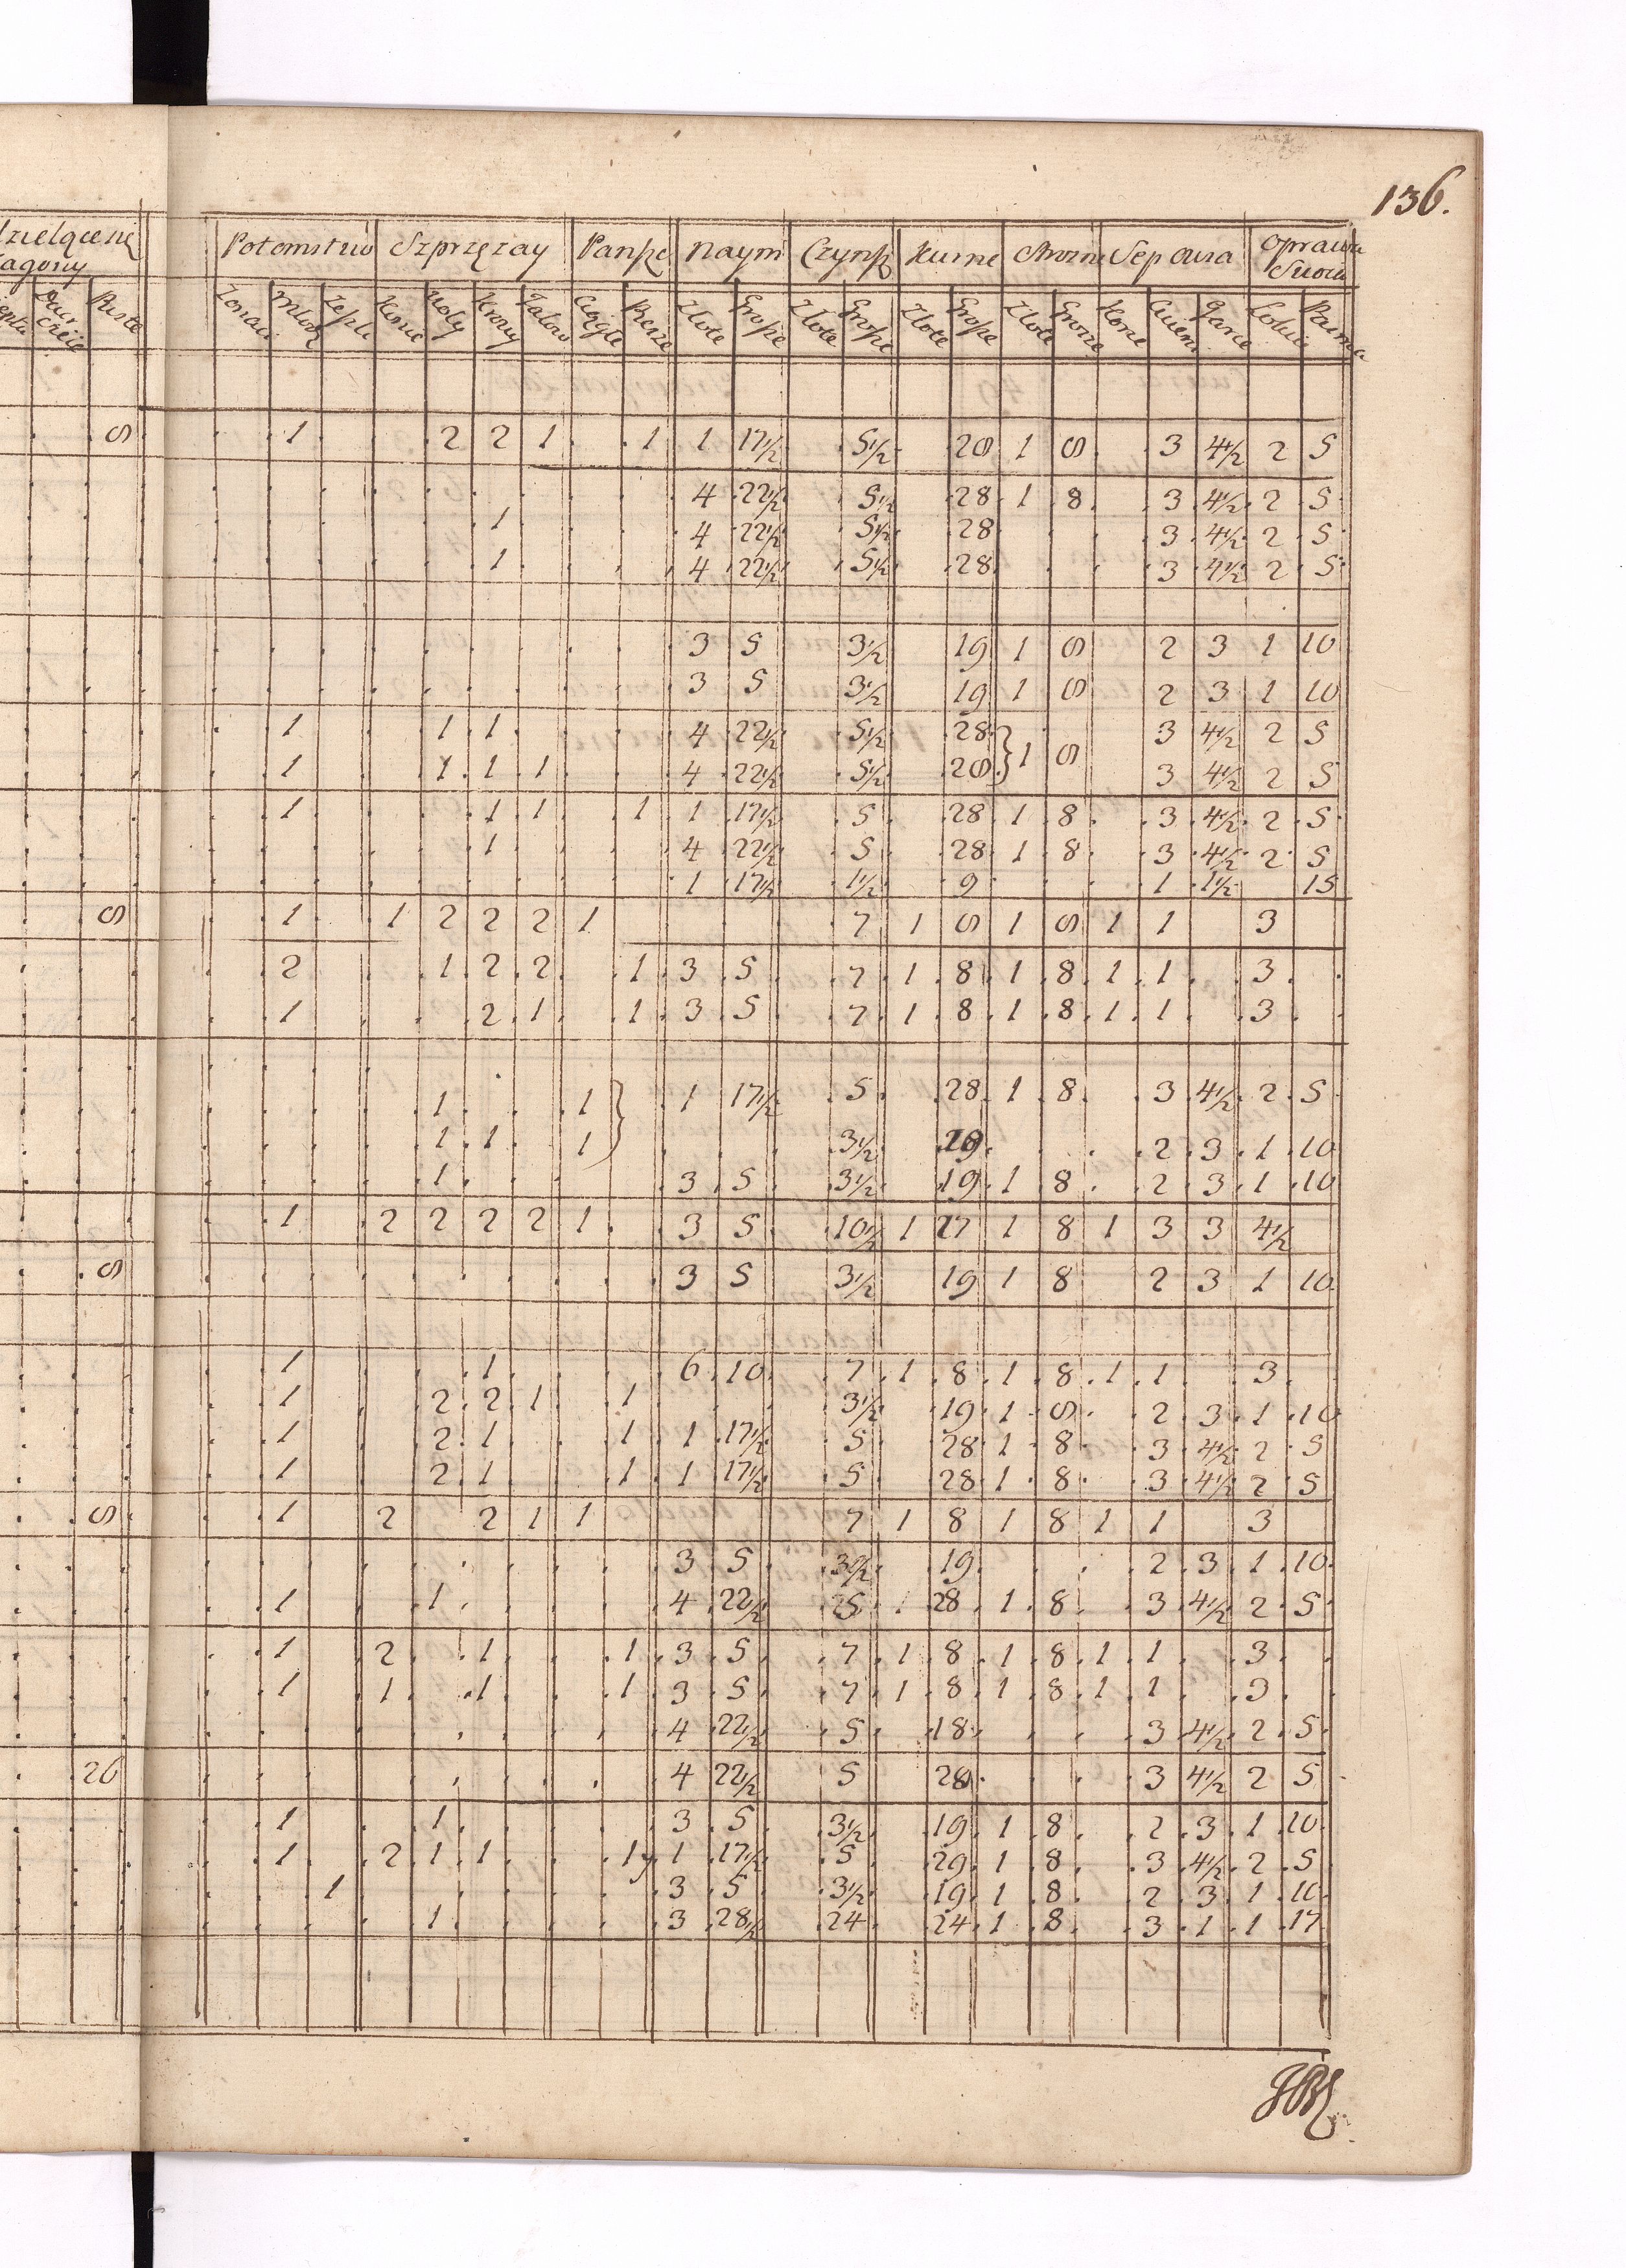 136.
Potomstwo Szprzęzay Panszc Naym Czynsz Kurne Strozne Sep Owsa Oprawa
Zonaci Młodz Konie Woły Krowy Jałow Ciągłe Piesze Złote Grosze Złote Grosze Złote Grosze Złote Grosze Korce Cwierci Garce
8 1 2 2 1 1 1 17½ 5½ 28 1 8 3 4½ 2 5
4 22½ 5½ 28 1 8 3 4½ 2 5
1 4 22½ 5½ 28 3 4½ 2 5
1 4 22½ 5½ 28 3 4½ 2 5
3 5 3½ 19 1 8 2 3 1 10
3 5 3½ 19 1 8 2 3 1 10
1 1 1 4 22½ 5½ 28 3 4½ 2 5
1 1 1 1 4 22½ 5½ 28 } 1 8 3 4½ 2 5
1 1 1 1 1 17½ 5 28 1 8 3 4½ 2 5
1 4 22½ 5 28 1 8 3 4½ 2 5
1 17½ 1½ 9 1 1½ 15
8 1 1 2 2 2 1 7 1 8 1 8 1 1 3
2 1 2 2 1 3 5 7 1 8 1 8 1 1 3
1 2 1 1 3 5 7 1 8 1 8 1 1 3
1 1 } 1 17½ 5 28 1 8 3 4½ 2 5
1 1 1 3½ 19 2 3 1 10
1 3 5 3½ 19 1 8 2 3 1 10
1 2 2 2 2 1 3 5 10½ 1 27 1 8 1 3 3 4½
8 3 5 3½ 19 1 8 2 3 1 10
1 1 6 10 7 1 8 1 8 1 1 3
1 2 2 1 1 3½ 19 1 8 2 3 1 10
1 2 1 1 1 17½ 5 28 1 8 3 4½ 2 5
1 2 1 1 1 17½ 5 28 1 8 3 4½ 2 5
8 1 2 2 1 1 7 1 8 1 8 1 1 3
3 5 3½ 19 2 3 1 10
1 1 4 22½ 5 28 1 8 3 4½ 2 5
1 2 1 1 3 5 7 1 8 1 8 1 1 3
1 1 1 1 3 5 7 1 8 1 8 1 1 3
4 22½ 5 18 3 4½ 2 5
26 4 22½ 5 28 3 4½ 2 5
1 1 3 5 3½ 19 1 8 2 3 1 10
1 2 1 1 1 1 17½ 5 29 1 8 3 4½ 2 5
1 3 5 3½ 19 1 8 2 3 1 10
1 3 28½ 24 24 1 8 3 1 1 17